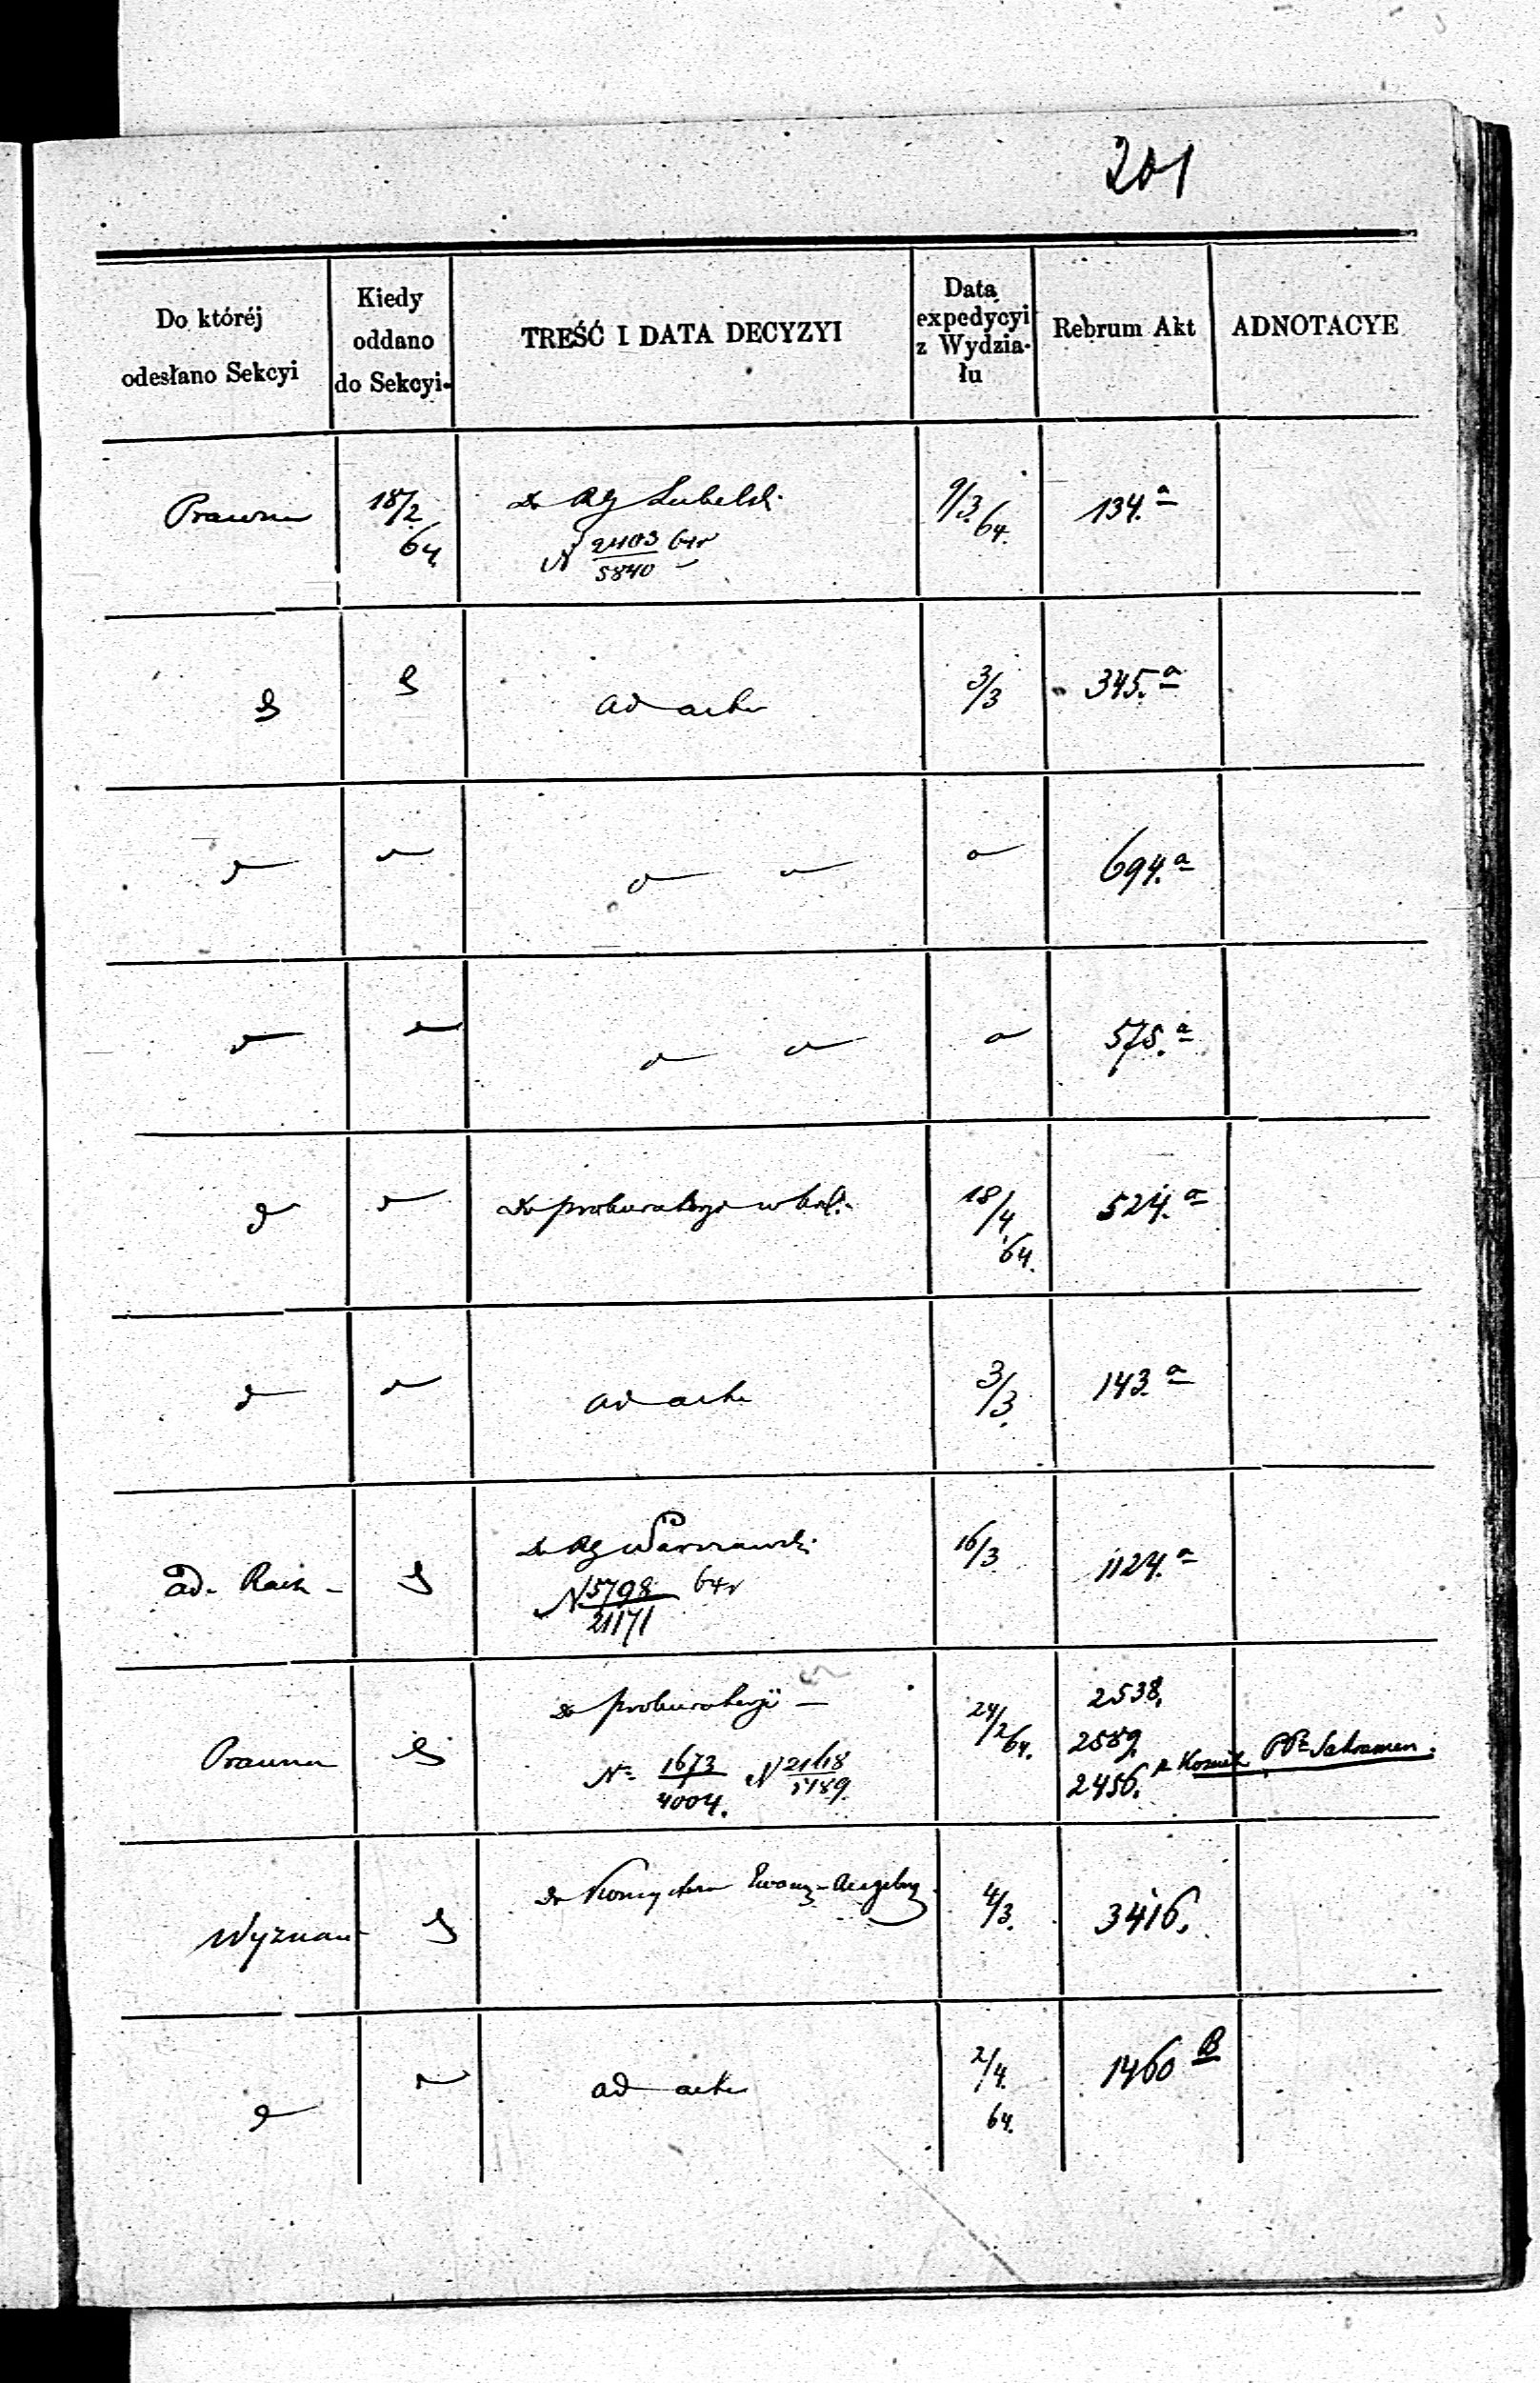 201
Do któréj odesłano Sekcyi | Kiedy oddano do Sekcyi. | TREŚĆ I DATA DECYZYI | Data expedycyi z Wydziału | Rebrum Akt | ADNOTACYE
Prawna | 18/2 64 | Do RG Lubelski N 2403/5840 64r | 9/3 64. | 134.a
ad acta | 3/3 | 345.a
694.a
575.a
Do prokuratoryi w Król. | 18/4 64. | 524.a
ad acta | 3/3. | 143.a
ad. Rach - | Do RG Warszawski N 5798/21171 64r | 16/3 | 1124.a
Prawna | Do prokuratoryi — Nº 1673/4004. N | 24/2 64. | 2538. 2559. 2456.
Wyznań | Do Konsystorza Ewang-Augsbrg. | 4/3. | 3416.
ad acta | 2/4. 64. | 1460 B